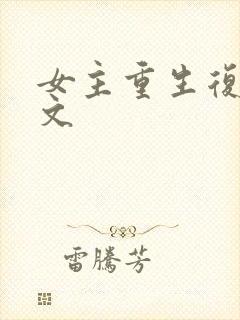 女主重生復
文
雷騰芳